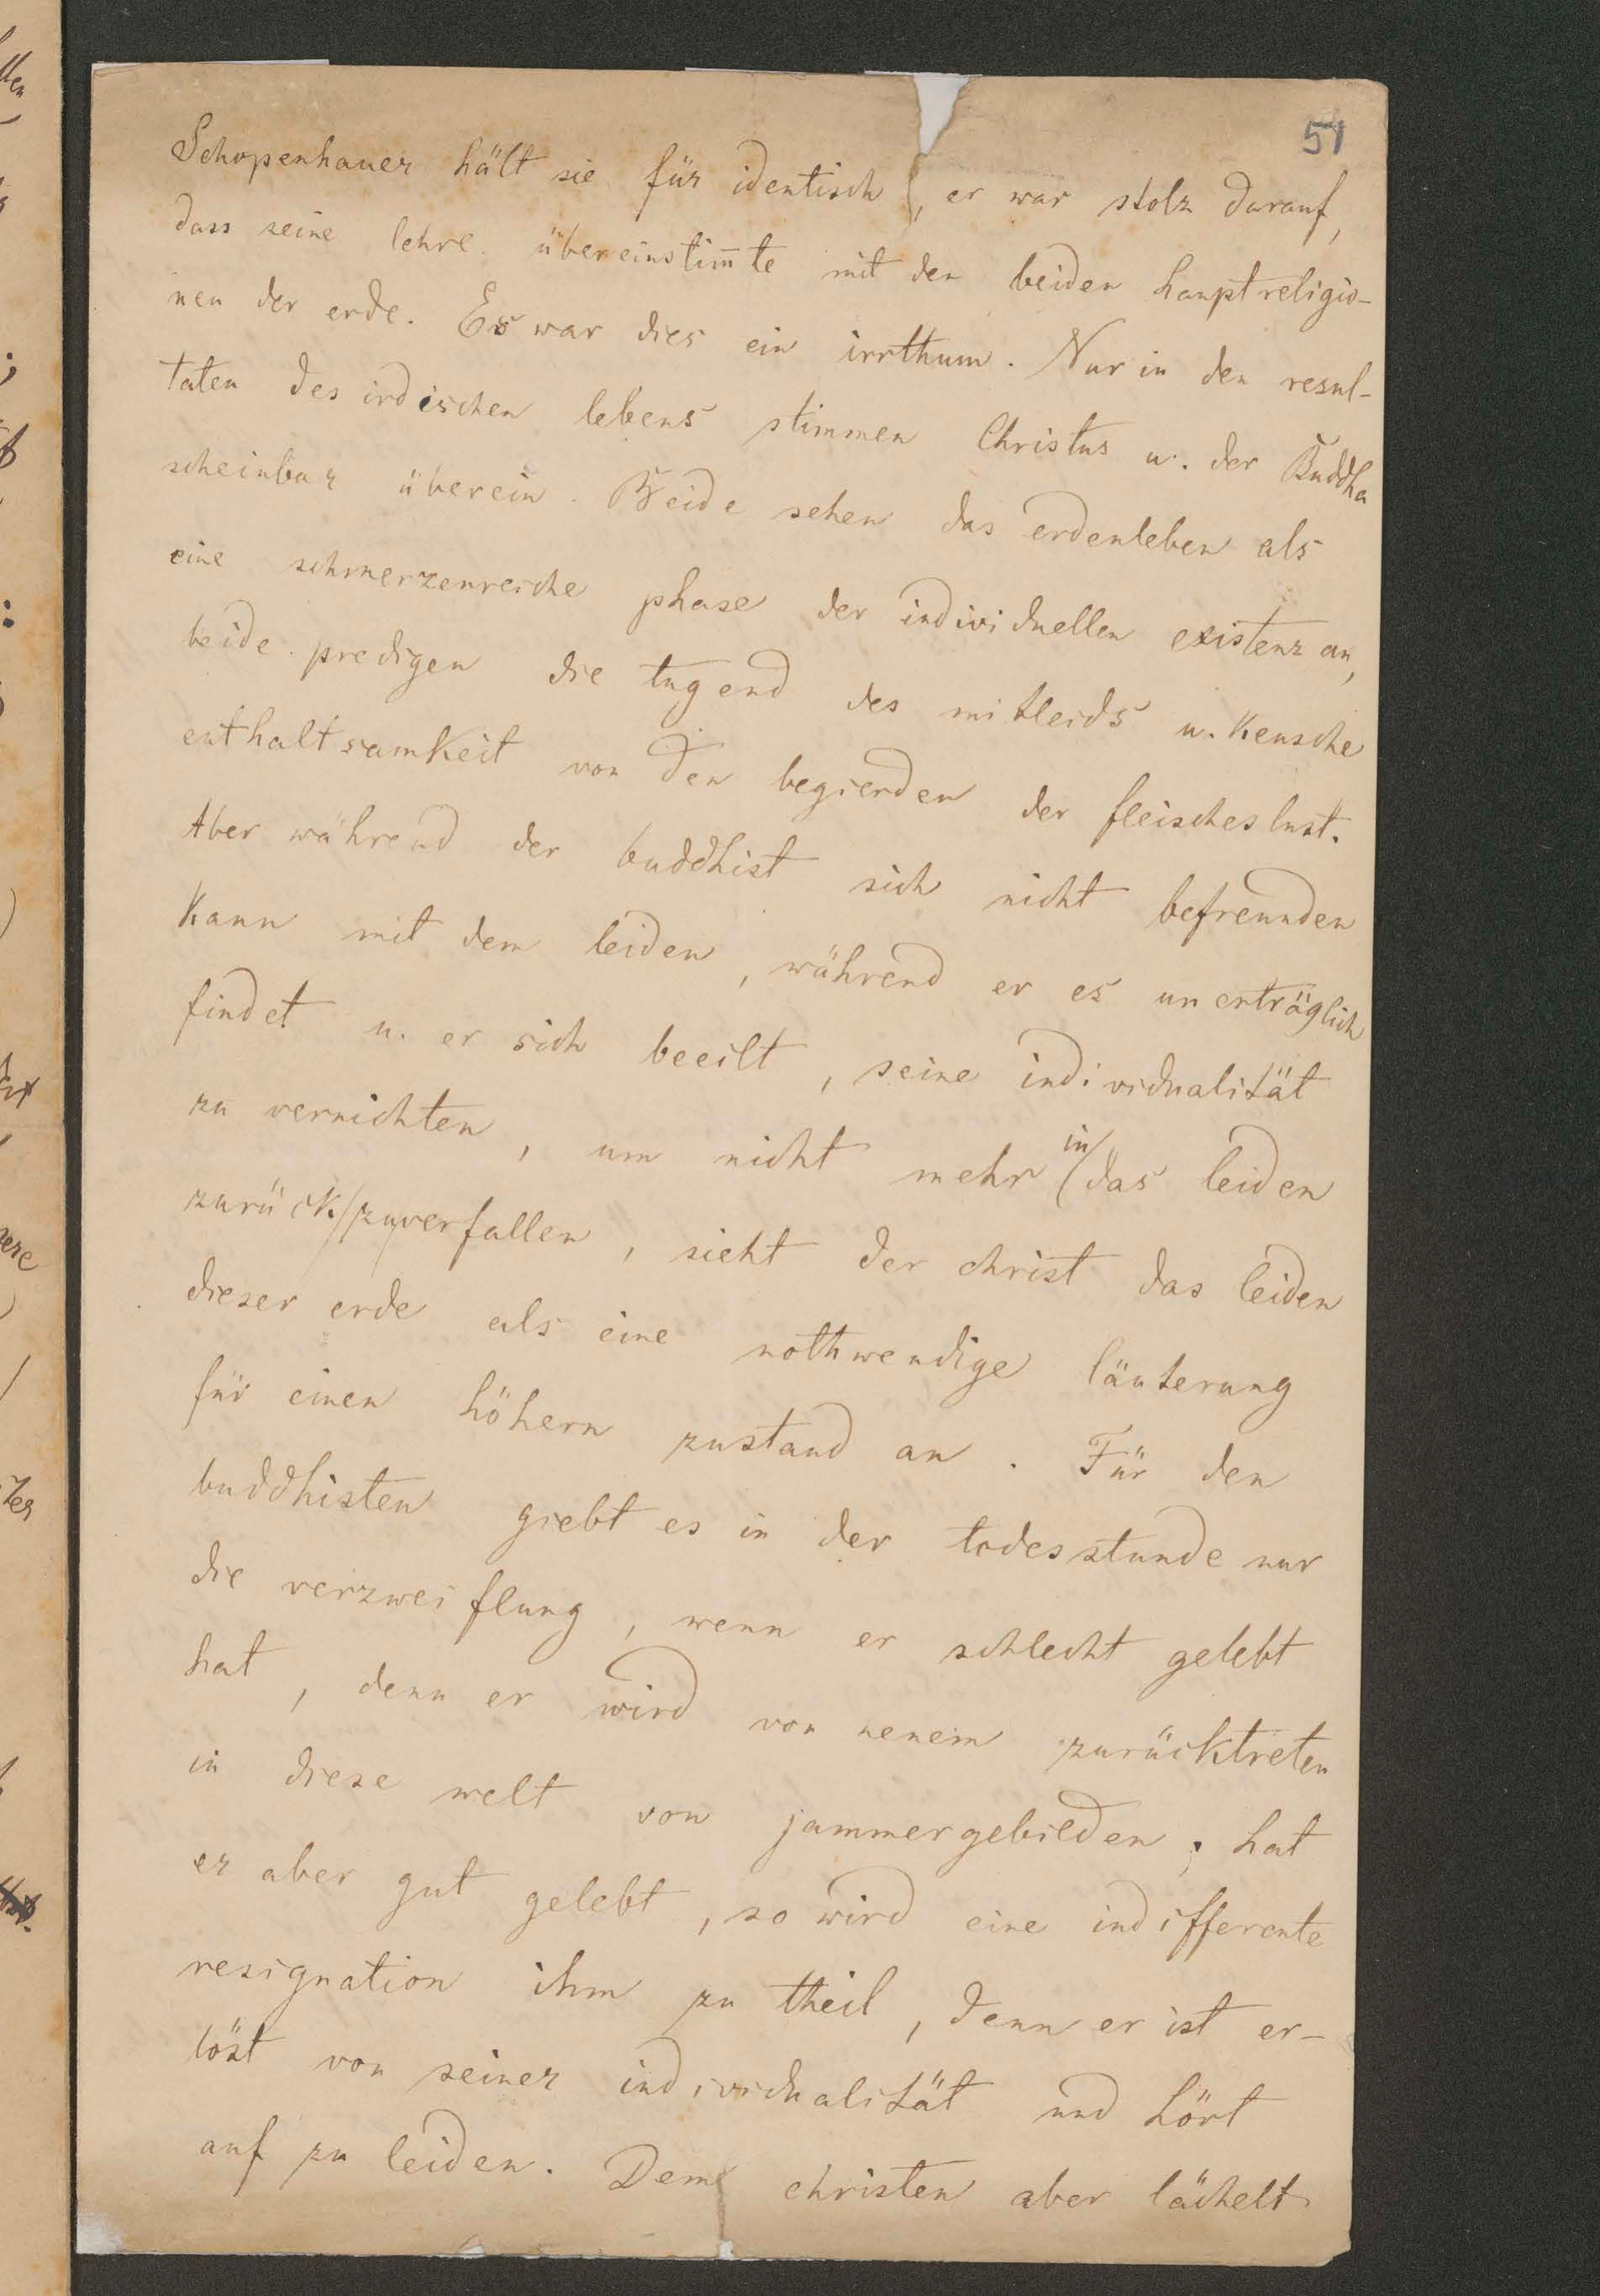 51
Schopenhauer hält sie für identisch, er war stolz darauf,
dass seine lehre übereinstim̅te mit den beiden hauptreligio-
nen der erde. Es war dies ein irrthum. Nur in den resul-
taten des irdischen lebens stimmen Christus u. der Buddha
scheinbar überein. Beide sehen das erdenleben als
eine schmerzenreiche phase der individuellen existenz an,
beide predigen die tugend des mitleids u. keusche
enthaltsamkeit von den begierden der fleischeslust.
Aber während der buddhist sich nicht befreunden
kann mit dem leiden, während er es unerträglich
findet u. er sich beeilt, seine individualität
zu vernichten, um nicht mehr in das leiden
zurück/zuverfallen, sieht der christ das leiden
dieser erde als eine nothwendige läuterung
für einen höhern zustand an. Für den
buddhisten giebt es in der todesstunde nur
die verzweiflung, wenn er schlecht gelebt
hat, denn er wird von neuem zurücktreten
in diese welt von jammergebilden; hat
er aber gut gelebt, so wird eine indifferente
resignation ihm zu theil, denn er ist er-
löst von seiner individualität und hört
auf zu leiden. Dem christen aber lächelt